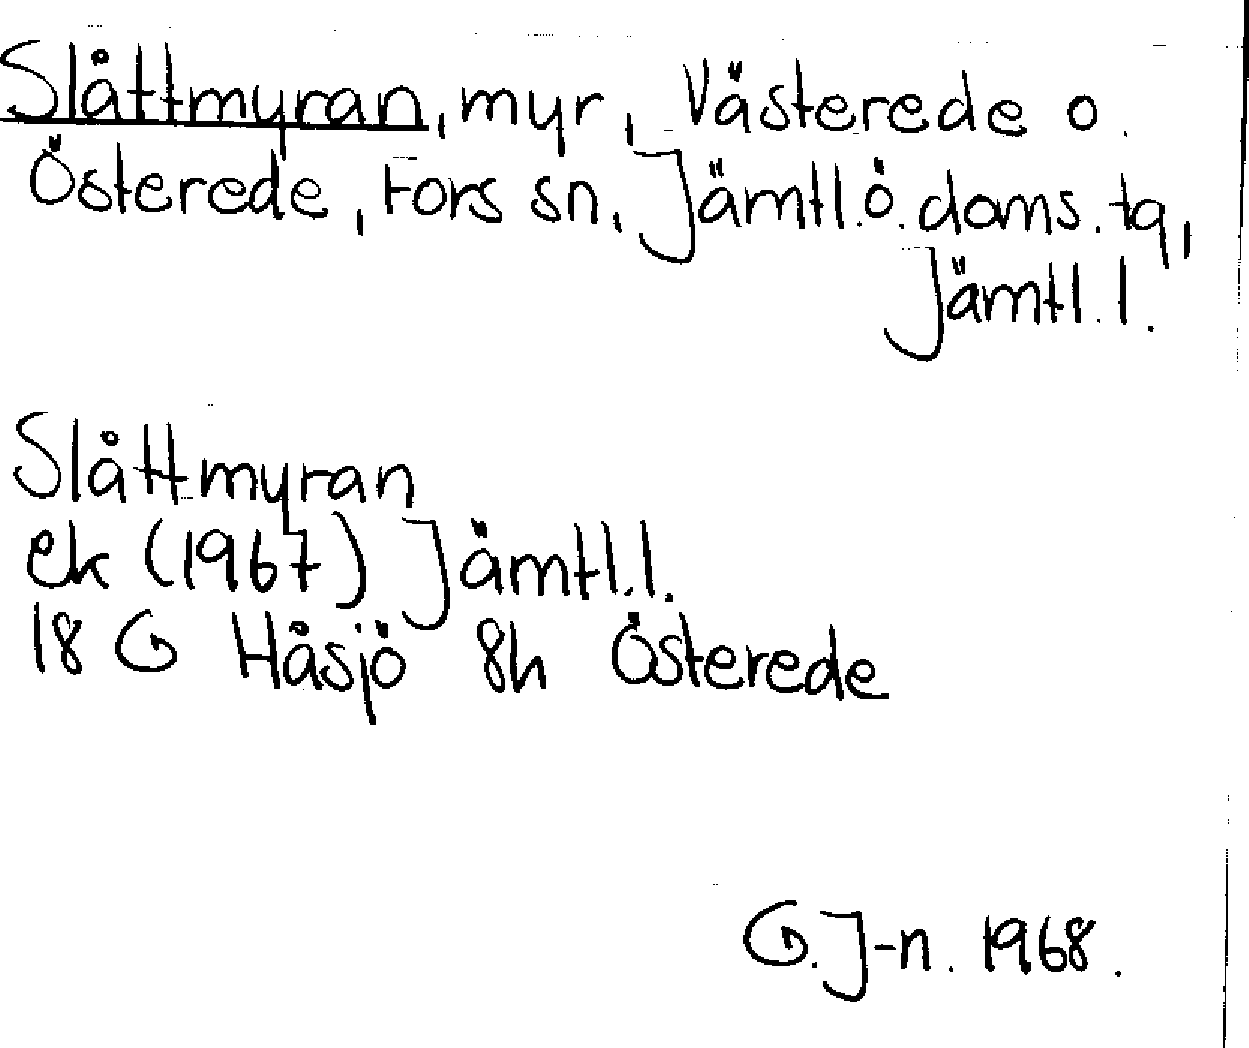 Slåttmyran, myr, Västerede o.
Österede, Fors sn, Jämtl.ö.doms.tg,
Jämtl.l.
Slåttmyran
ek (1967) Jämtl.l.
18 G Håsjö 8h Österede
G.J-n. 1968.